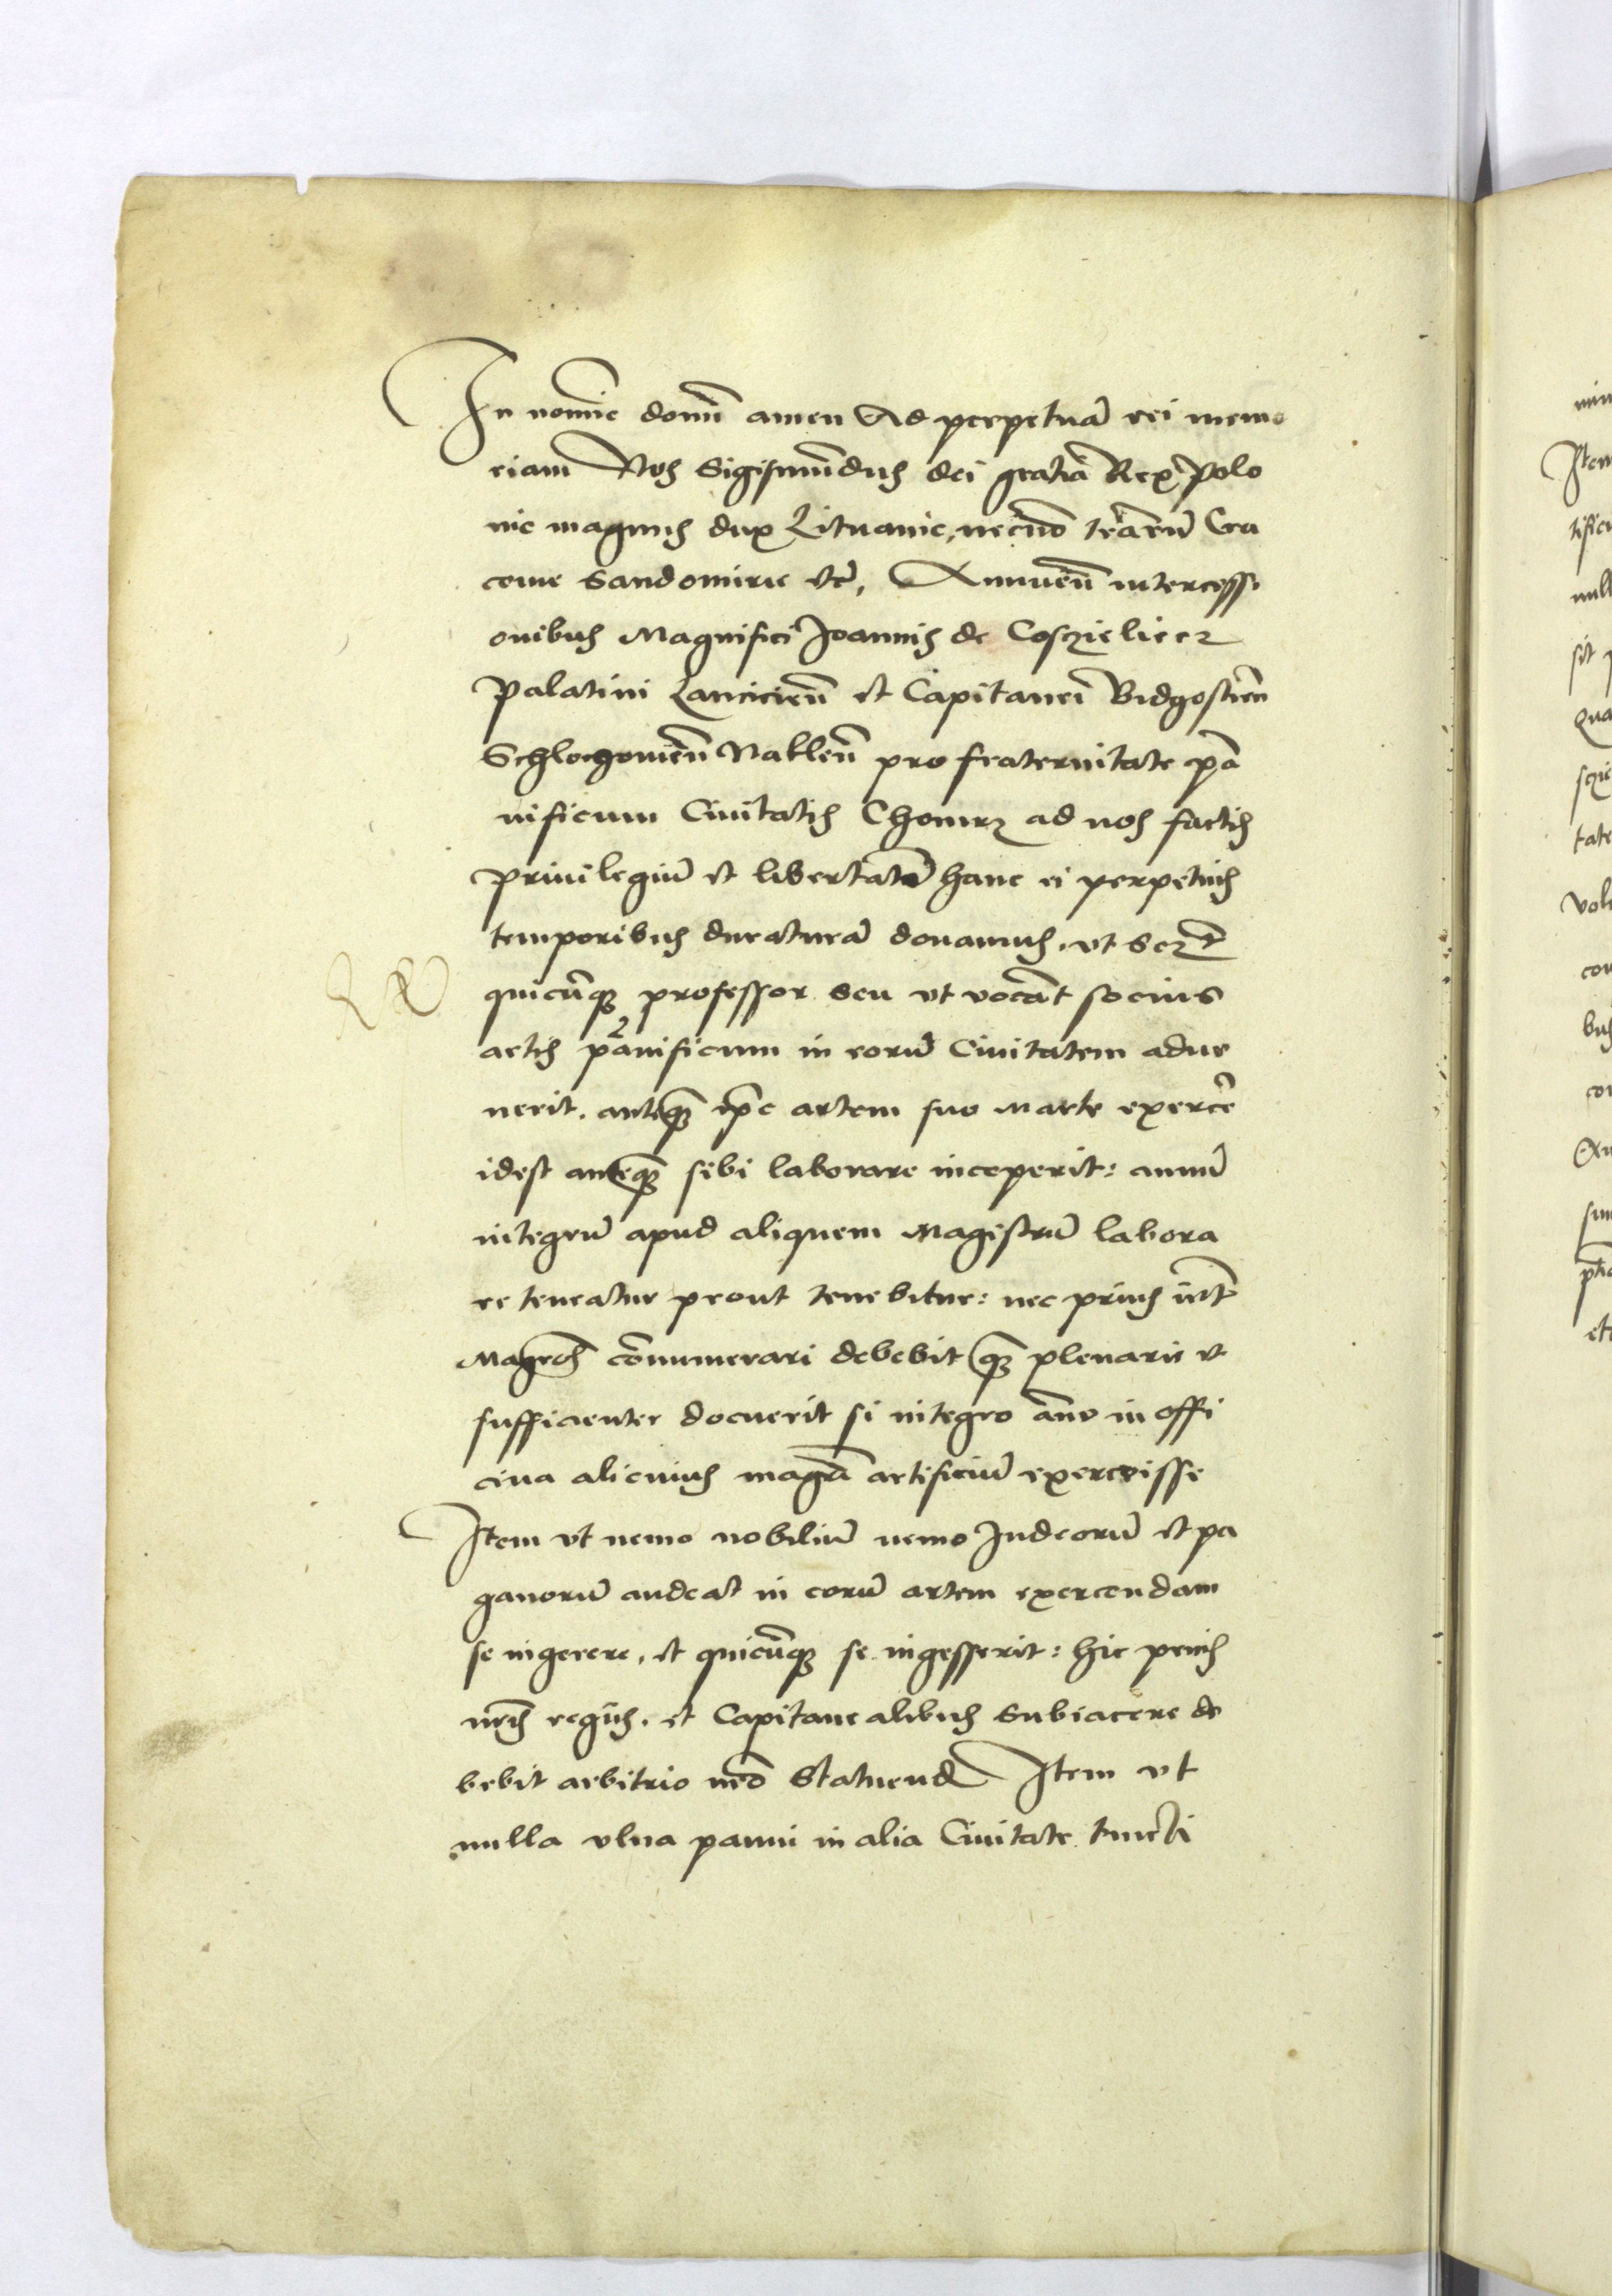 In nomīe domī amen Ad perpetuā rei memo
riam Nos Sigismūdus dei gratiā Rex Polo
nie magnus dux Lituanie, necnō terrarū Cra
couie Sandomirie etc̄, Annuēn intercessi
onibus Magnifici Joannis de Cosczieliecz
Palatini Lancicieñ et Capitanei Bidgostieñ
Schlochouieñ Nakleñ pro fraternitate pā
nificum Ciuitatis Chomicz ad nos factis
Priuilegiū et libertatē hanc ei perpetuis
temporibus duraturā donamus. vt scz
quicūq̨ professor seu vt vocāt socius
artis pānificum in eorū Ciuitatem adue
nerit. anteq̨ īpe artem suo marte exercē
idest anteq̨ sibi laborare inceperit: annū
integrū apud aliquem Magistrū labora
re teneatur prout tenebitur: nec prius int̄
Magr̄os cōnumerari debebit q̨ plenarie et
sufficienter docuerit si integro āno in offi
cina alicuius magr̄i artificiū exercuisse
Item vt nemo nobiliū nemo Judeorū et pa
ganorū audeat in eorū artem exercendam
se ingerere, et quicūq̨ se ingesserit: hic penis
nr̄is regijs. et Capitanealibus subiacere de
bebit arbitrio nr̄o statuend Item vt
nulla vlna panni in alia Ciuitate tincti